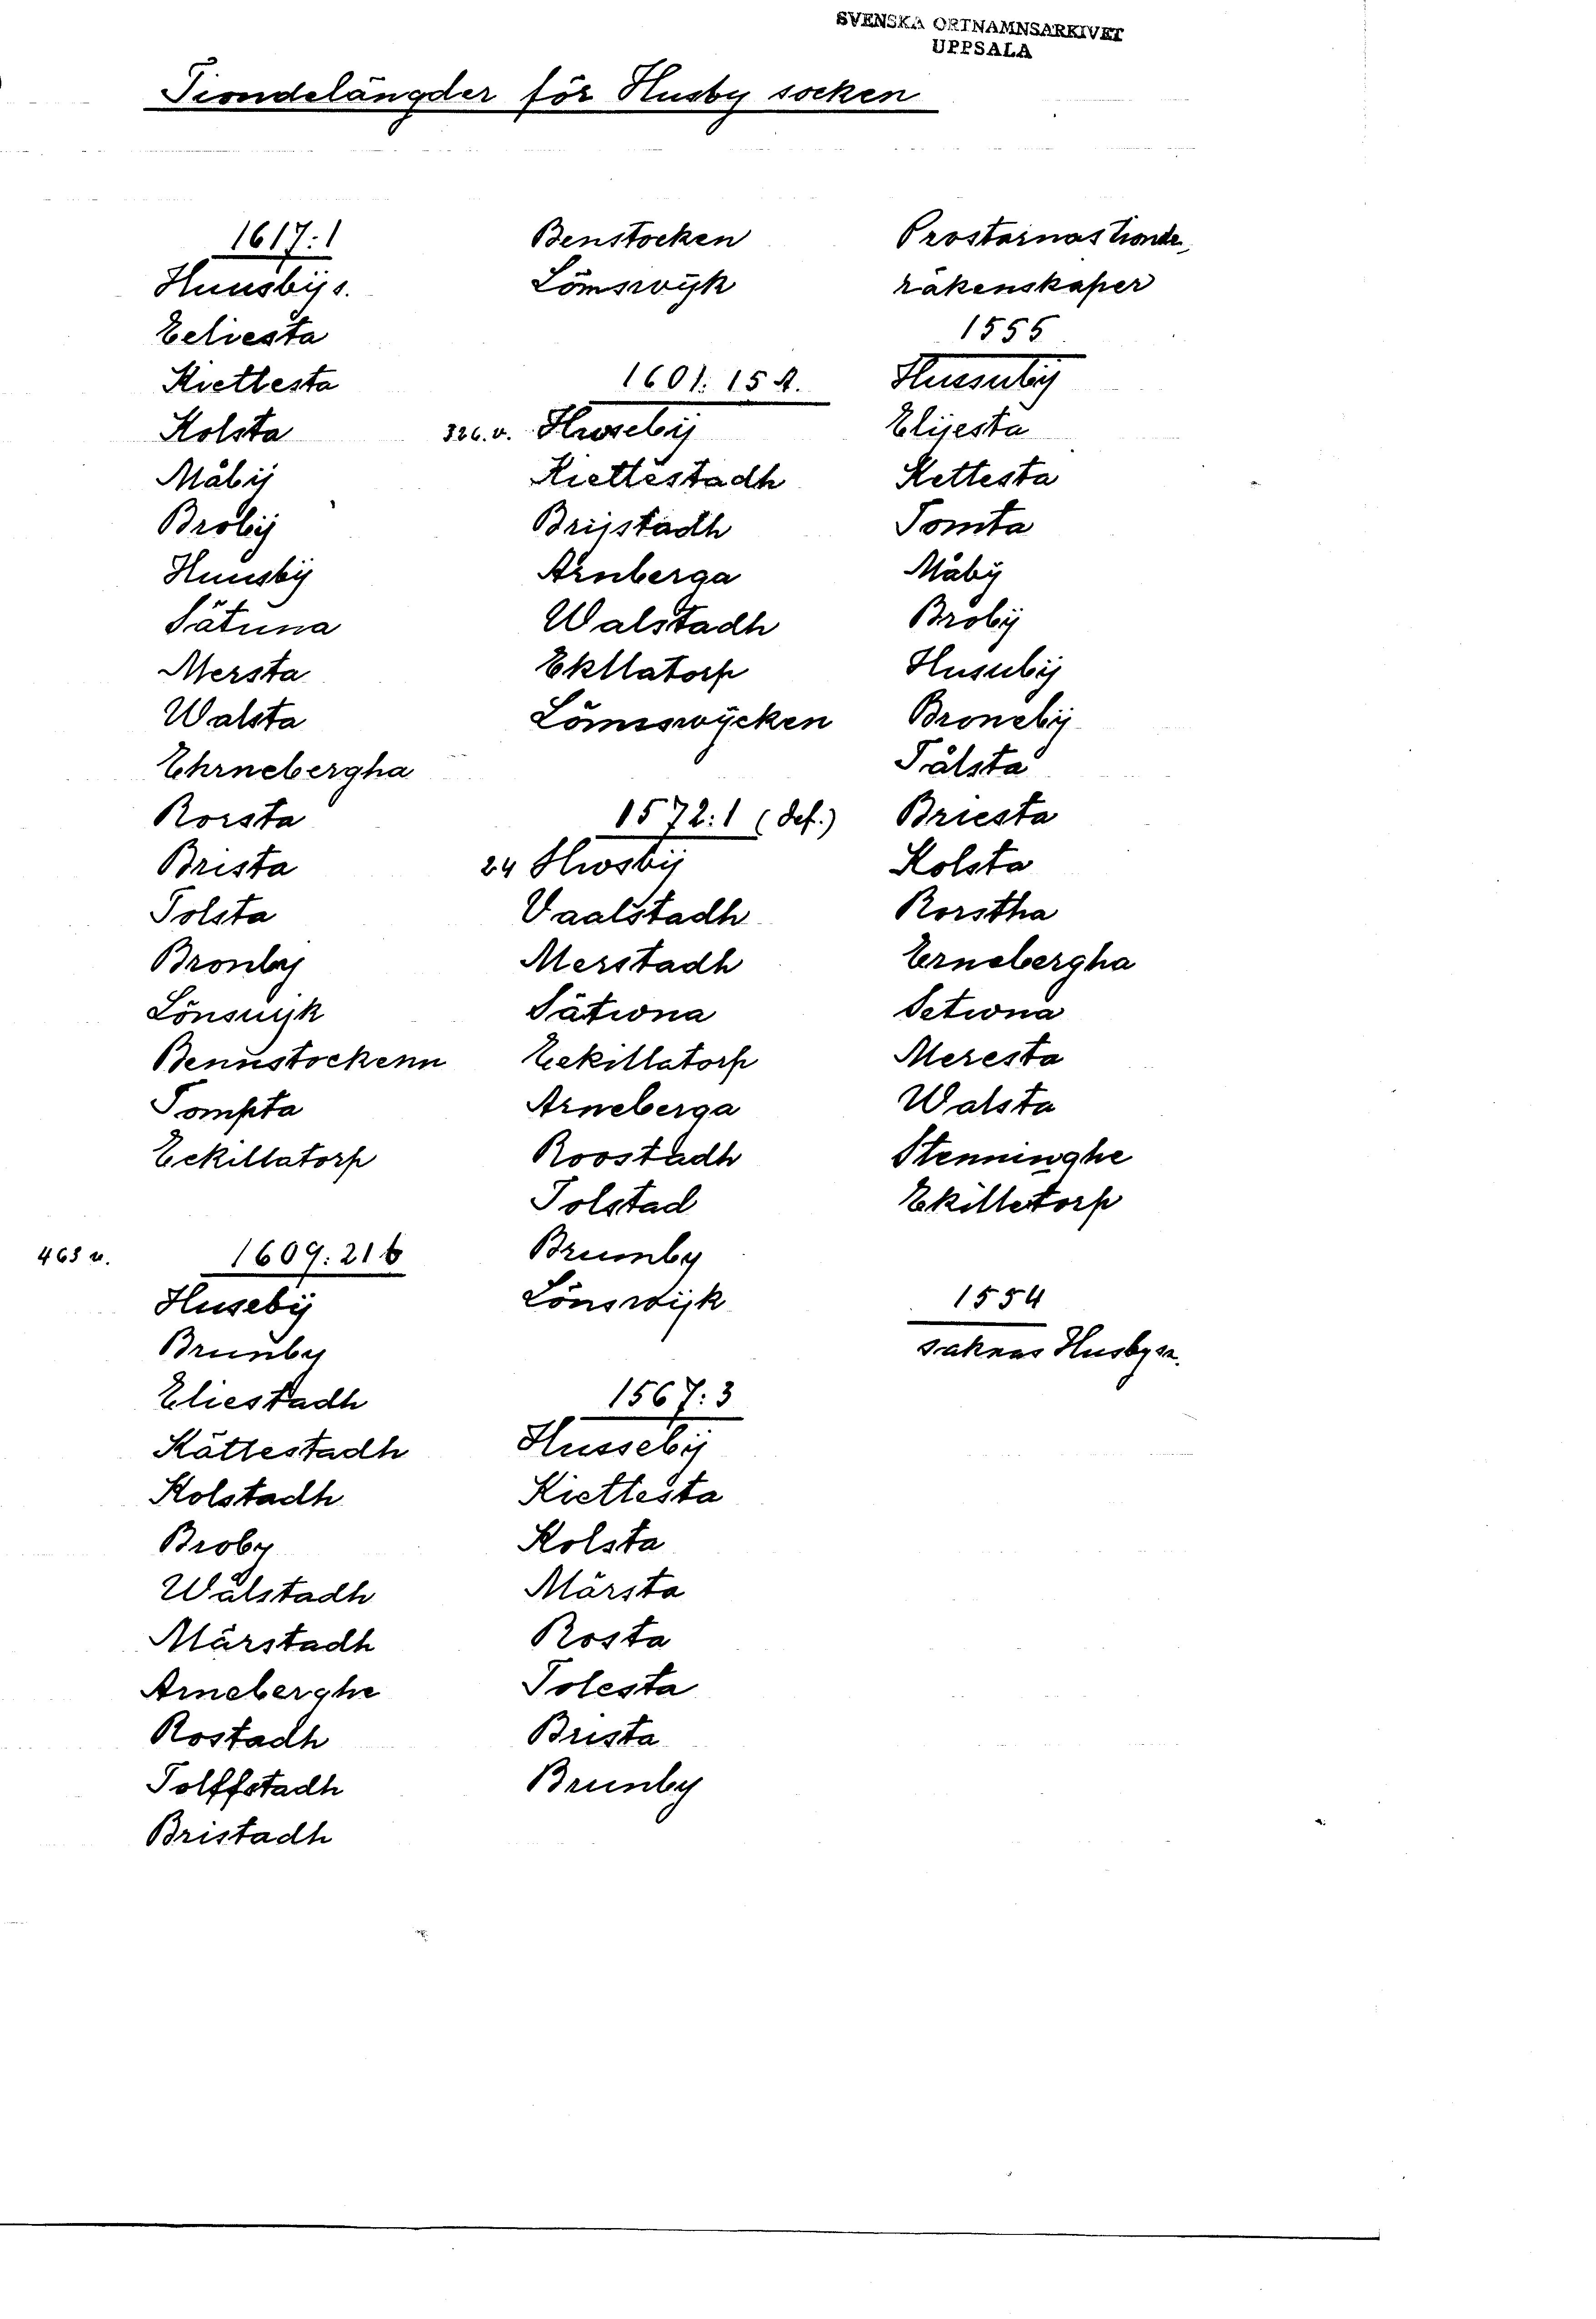 SVENSKA ORTNAMNSARKIVET
UPPSALA
Tiondelängder för Husby socken
1617:1
Huusbijs.
Eeliesta
Kiettesta
Kolsta
Måbij
Brobij
Huusbij
Sätuna
Mersta
Walsta
Ehrnebergha
Rorsta
Brista
Tolsta
Bronby
Lönsuijk
Bennstockenn
Tompta
Eckillatorp
463 v. 1609:21b
Husebij
Brunby
Eliestadh
Kättestadh
Kolstadh
Broby
Wålstadh
Märstadh
Arneberghe
Rostadh
Tolffstadh
Bristadh
Benstocken
Lömswijk
1601:15 A.
326.v. Hwsebij
Kiettestadh
Brijstadh
Arnberga
Walstadh
Ekllatorp
Lömsswijcken
1572:1 (def.)
24 Hwsbij
Vaalstadh
Merstadh
Sätwna
Eekillatorp
Arneberga
Roostadh
Tolstad
Brumby
Lönswijk
1567:3
Hussebij
Kiettesta
Kolsta
Märsta
Rosta
Tolesta
Brista
Brunby
Prostarnas tionde-
räkenskaper
1555
Hussubij
Elijesta
Kettesta
Tomta
Måbij
Brobij
Husubij
Bronebij
Tålsta
Briesta
Kolsta
Rorstha
Ernebergha
Setwna
Meresta
Walsta
Stenninghe
Ekilletorp
1554
saknas Husby sn.